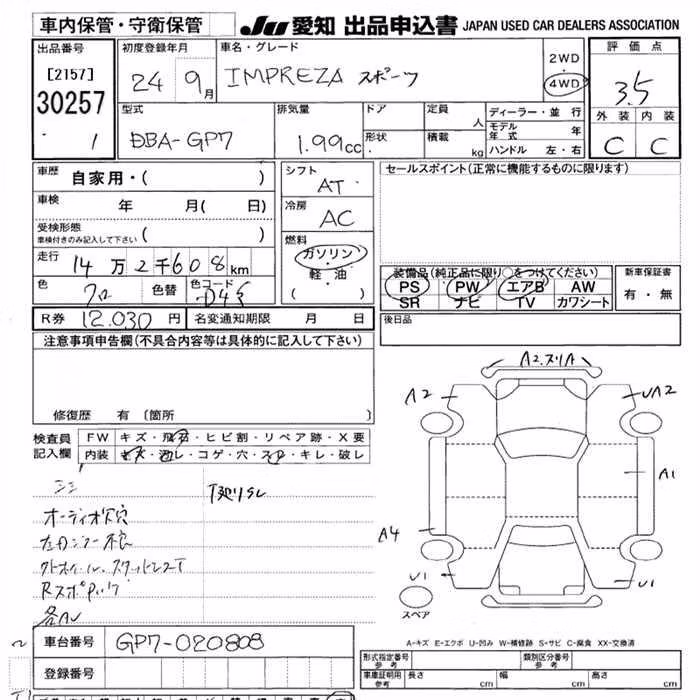 車内保管・守衛保管 JU 愛知 出品申込書 JAPAN USED CAR DEALERS ASSOCIATION
出品番号 初度登録年月 車名・グレード 評価点
[2157] 24 9月 IMPREZA スポーツ 2WD・4WD 3.5
30257
1
型式 排気量 ドア 定員 人 ディーラー・並行 外装 内装
DBA-GP7 1.99cc 形状 積載 kg モデル年式 年 C C
ハンドル 左・右
車歴 自家用・( ) シフト AT セールスポイント(正常に機能するものに限ります)
車検 年 月( 日) 冷房 AC
受検形態 ( )
車検付きのみ記入して下さい
走行 14万2千608km 燃料 ガソリン・軽・油 ( )
装備品(純正品に限り○をつけてください) 新車保証書
PS PW エアB AW 有・無
SR ナビ TV カワシート
色 クロ 色替 色コード D4S
R券 12.030円 名変通知期限 月 日 後日品
注意事項申告欄(不具合内容等は具体的に記入して下さい)
修復歴 有〔箇所 〕
検査員記入欄 FW キズ・飛石・ヒビ割・リペア跡・X要
内装 キズ・汚レ・コゲ・穴・スレ・キレ・破レ
A2.スリA
A2
A2
A1
A4
U1
U1
スペア
オーディオ穴
各AU
車台番号 GP7-020808
登録番号
A-キズ E-エクボ U-凹み W-補修跡 S-サビ C-腐食 XX-交換済
形式指定番号 参考 類別区分番号 参考
車庫証明用 参考 長さ cm 幅 cm 高さ cm